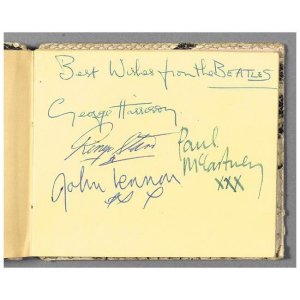 Best Wishes from the BEATLES
George Harrison
Ringo Starr
Paul
McCartney
xxx
John Lennon